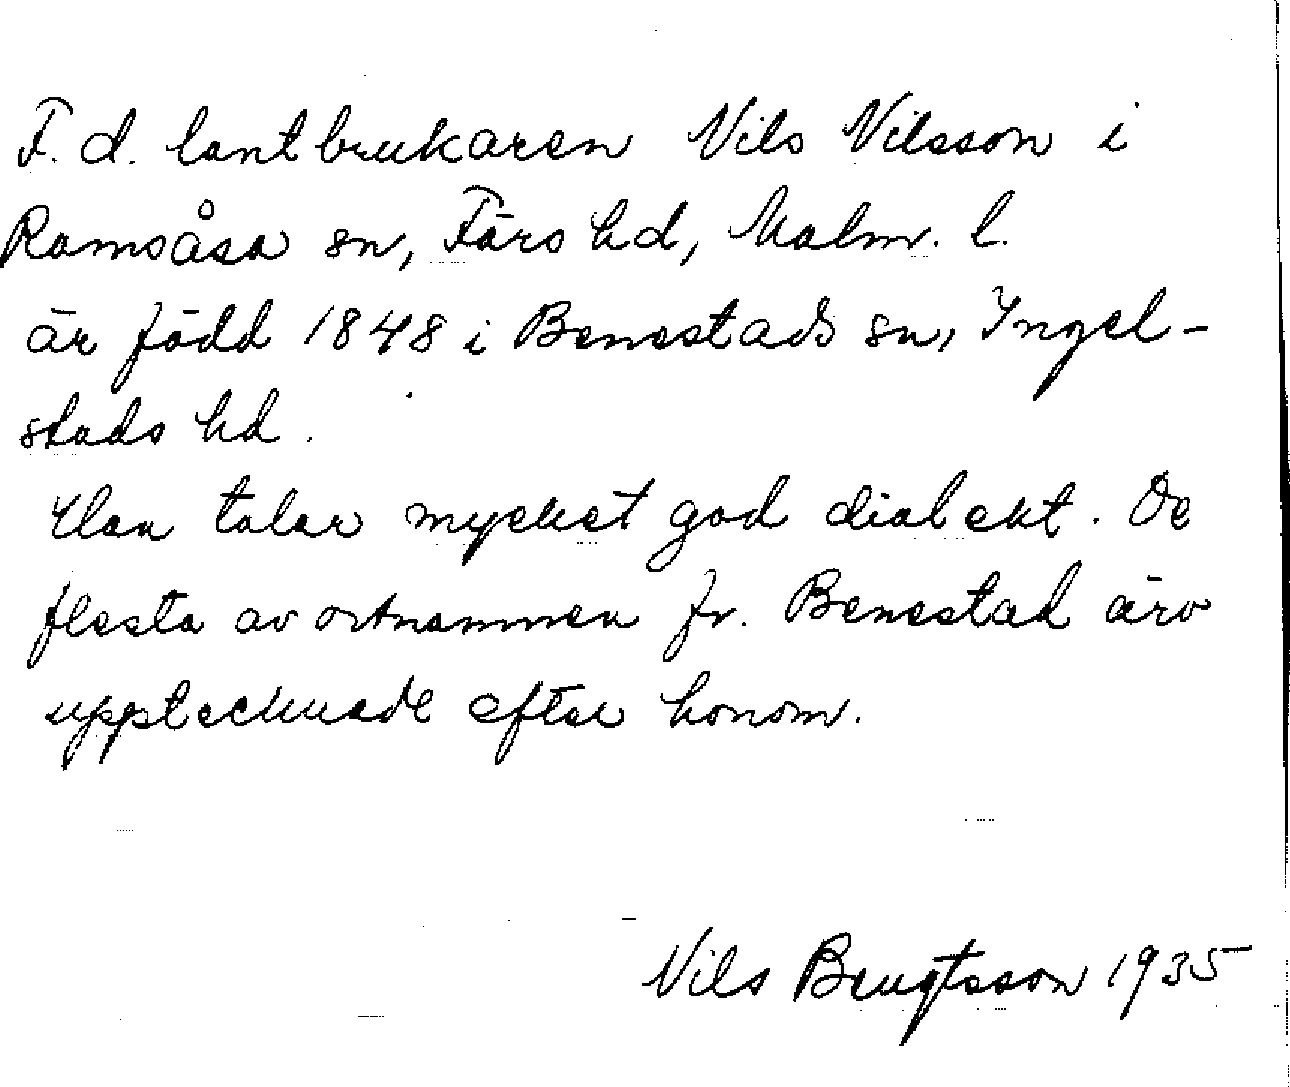 F. d. lantbrukaren Nils Nilsson i
Ramsåsa sn, Färs hd, Malm. l.
är född 1848 i Benestads sn, Ingel-
stads hd.
Han talar mycket god dialekt. De
flesta av ortnamnen fr. Benestad äro
upptecknade efter honom.
Nils Bengtsson 1935